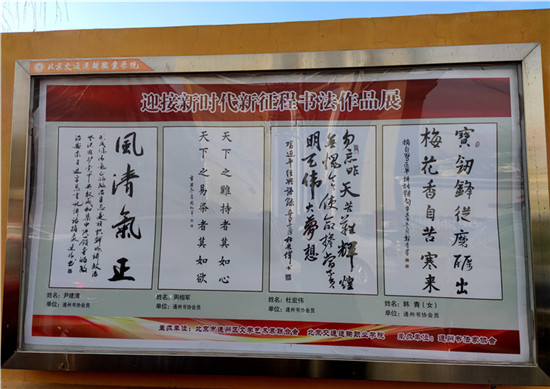 北京交通运输职业学院
迎接新时代新征程书法作品展
風清氣正
天下之難持者莫如心
天下之易染者莫如欲
勿忘昨天苦難輝煌
無愧今天使命擔當不負
明天偉大夢想
寶劍鋒從磨礪出
梅花香自苦寒來
姓名：尹建清
单位：通州书协会员
姓名：周相军
单位：通州书协会员
姓名：杜宏伟
单位：通州书协会员
姓名：韩 青（女）
单位：通州书协会员
主办单位：北京市通州区文学艺术界联合会 北京交通运输职业学院 承办单位：通州书法家协会